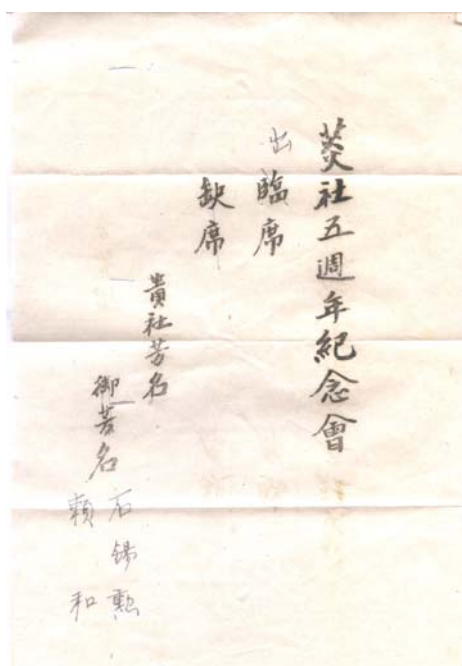 菼社五週年紀念會
出臨席
缺席
貴社芳名
御芳名
石錫勳
賴和